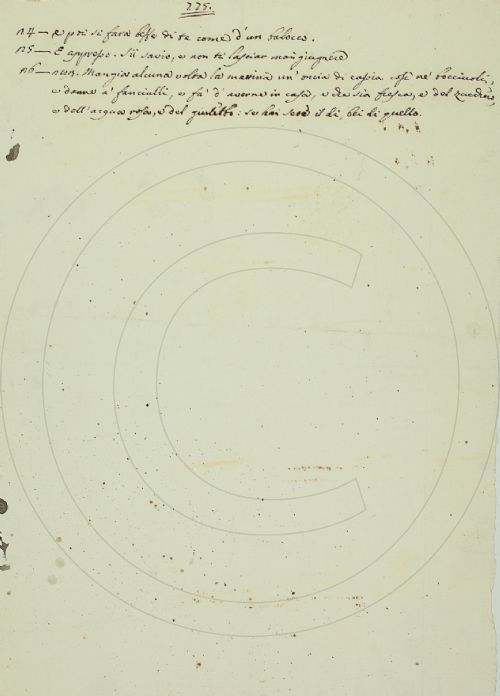 225.
124 — e poi si farà beffe di te come d'un balocco.
125 — E appresso. Sii savio, e non ti lasciar mangiugnere
126 — Mangia alcuna volta la mattina un' oncia di cassia così ne' bocciuoli,
e donne a' fanciulli, e fa' d' averne in casa, e che sia fresca, e del zucchero,
e dell'acqua rosa, e del giulebbo: se hai sete il dì, bei di quello.